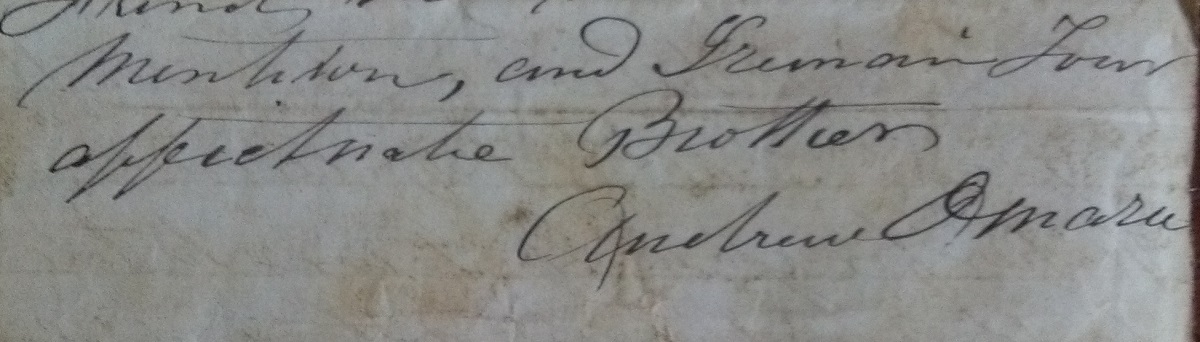 Mention, and I remain Your
affectnate Brother
Andrew Omara